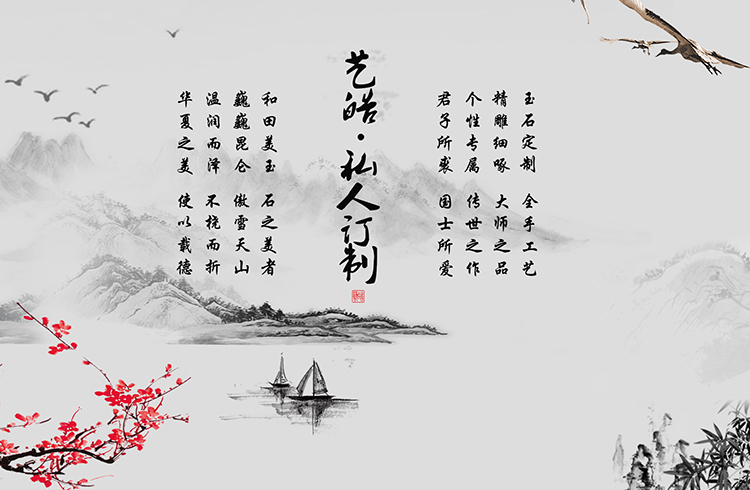 玉石定制 全手工艺
精雕细啄 大师之品
个性专属 传世之作
君子所裘 国士所爱
艺皓·私人订制
和田美玉 石之美者
巍巍昆仑 傲雪天山
温润而泽 不桡而折
华夏之美 使以载德